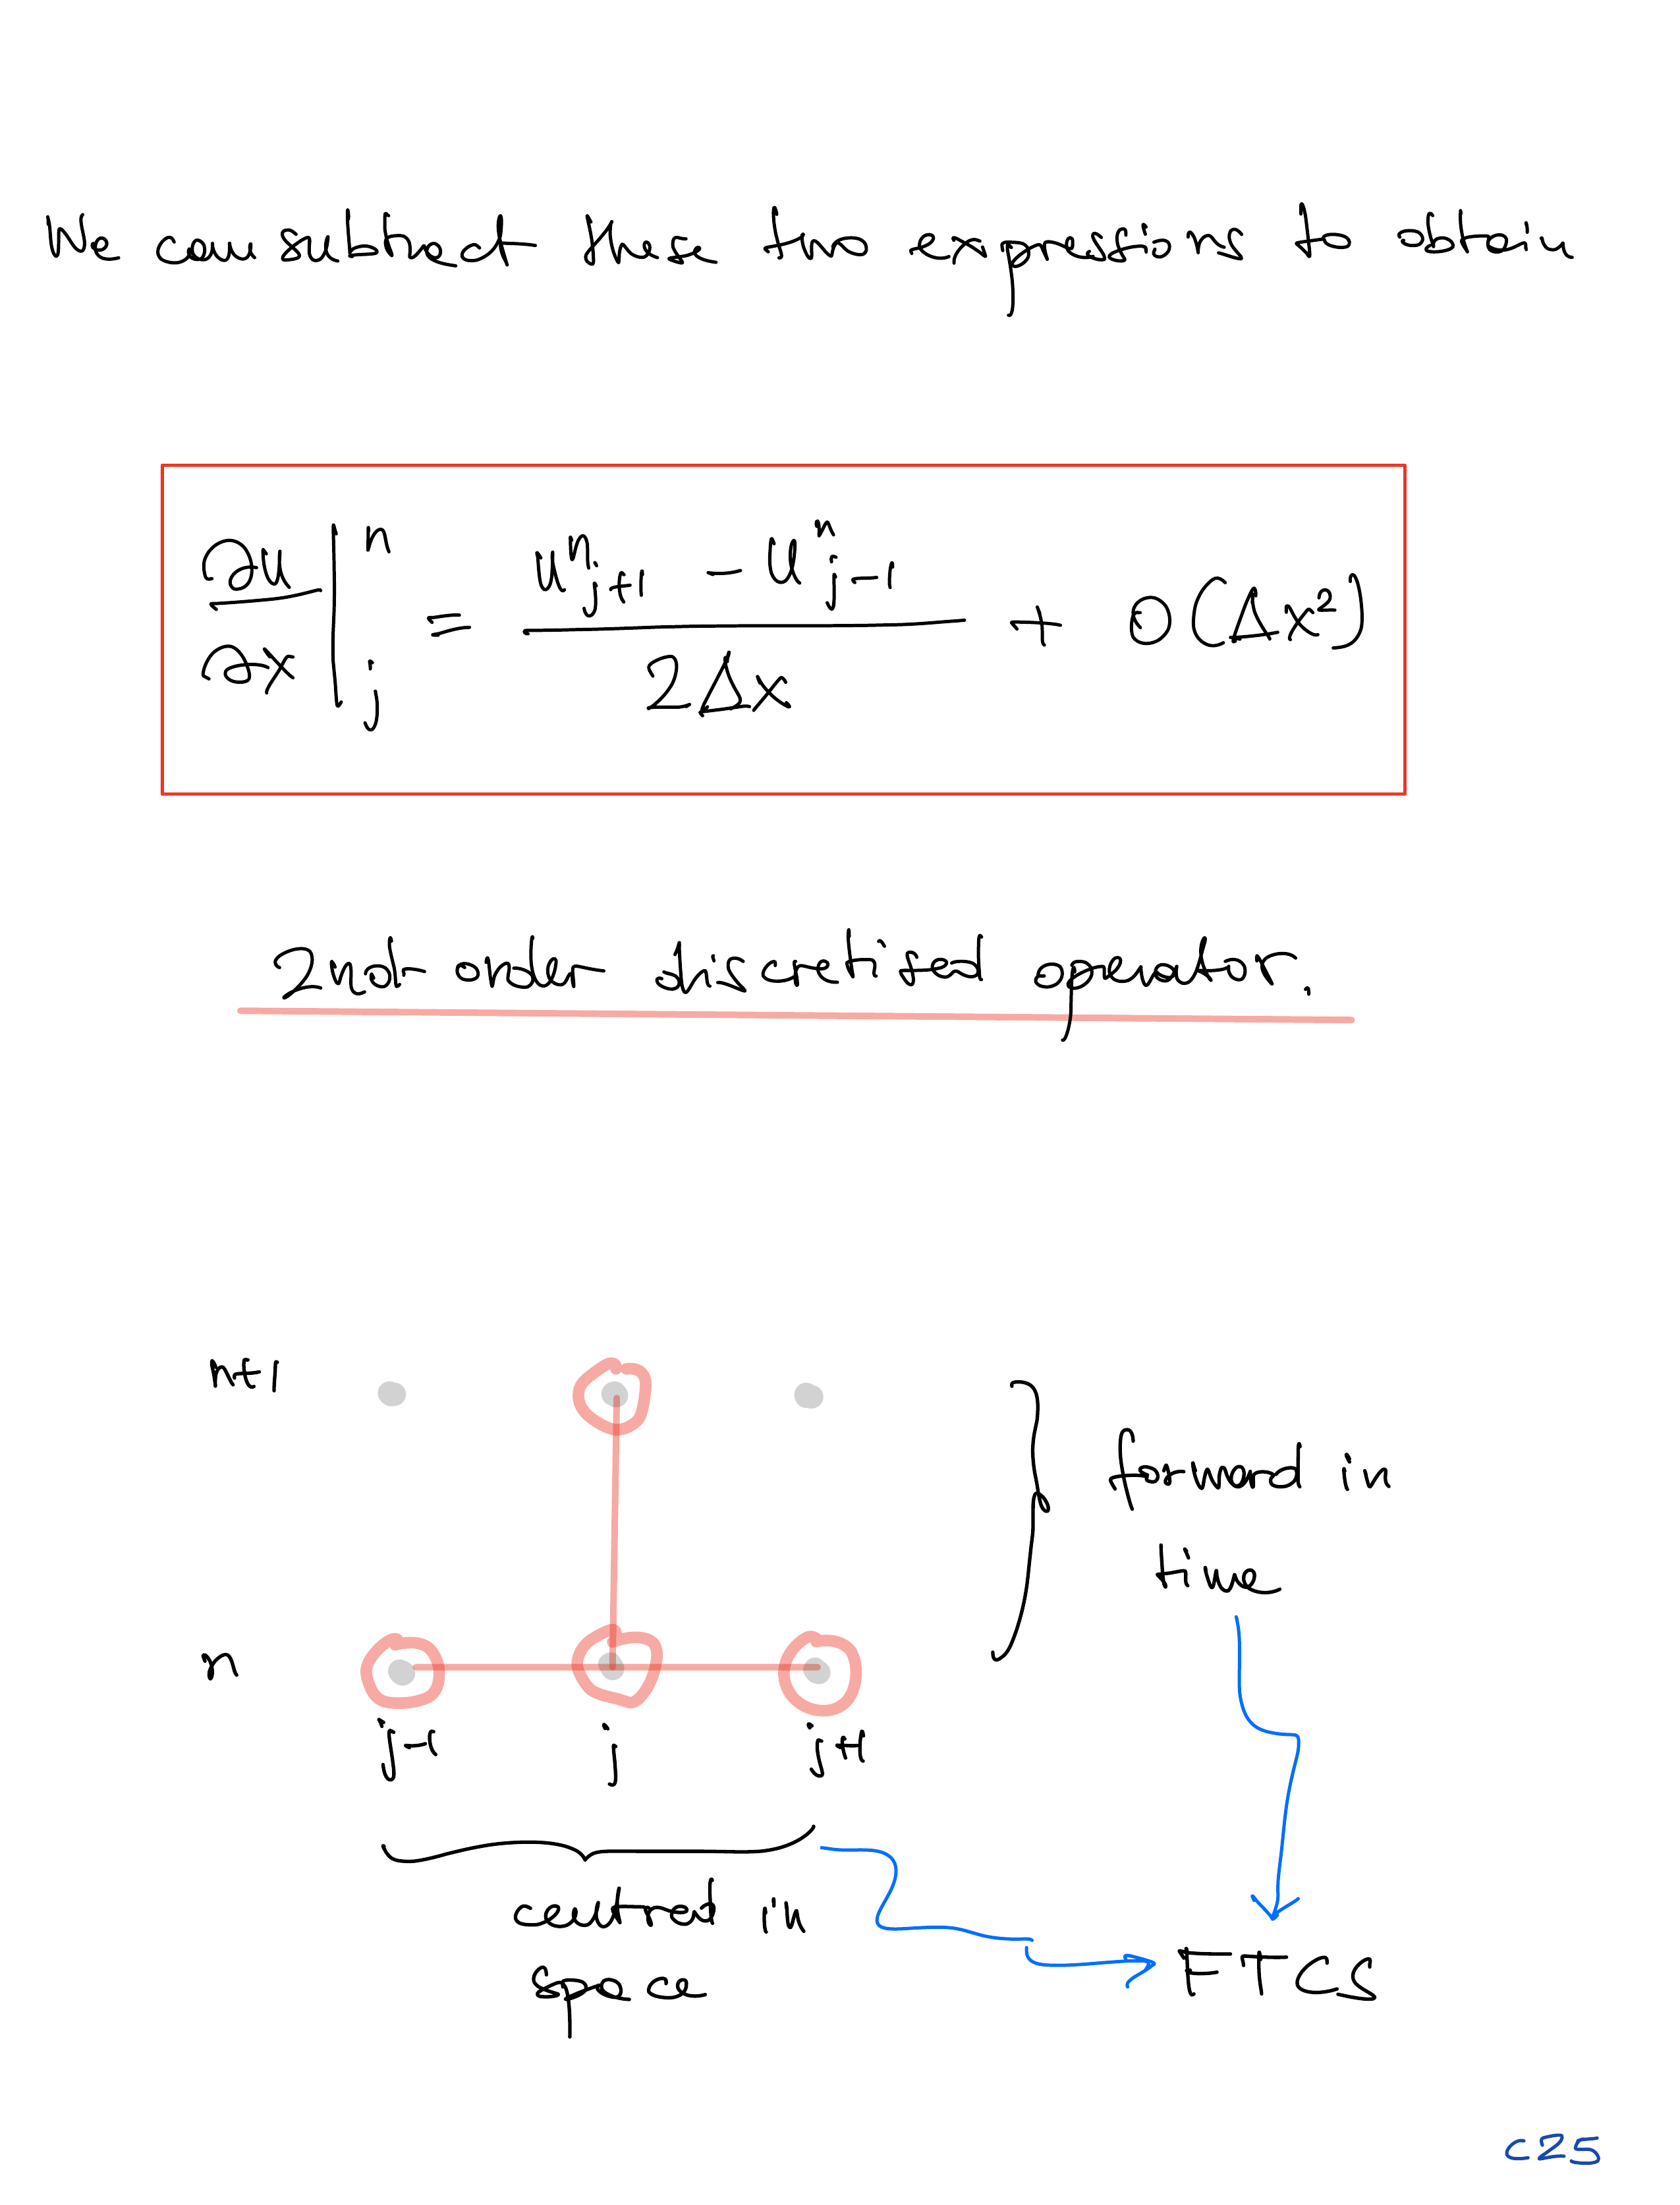 We can subtract these two expressions to obtain
∂u/∂x |ⁿⱼ = (uⁿⱼ₊₁ − uⁿⱼ₋₁) / 2Δx + O(Δx²)
2nd-order discretised operator.
n+1
forward in
time
n
j-1 j j+1
centred in
space
FTCS
C25